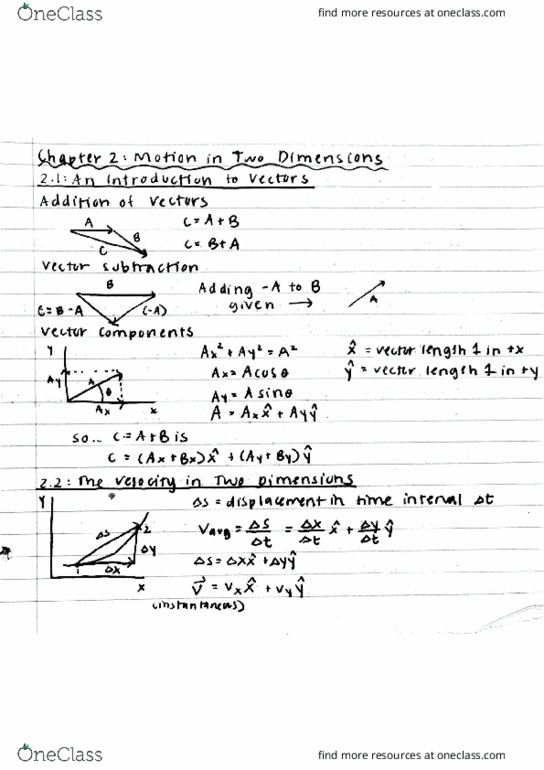 OneClass
find more resources at oneclass.com
Chapter 2: Motion in Two Dimensions
2.1: An Introduction to Vectors
Addition of Vectors
A
B
C
C = A + B
C = B + A
Vector Subtraction
B
C = B - A
(-A)
Adding -A to B
given →
A
Vector Components
Y
Ay
A
θ
Ax
x
Ax² + Ay² = A²
Ax = A cos θ
Ay = A sin θ
A = Ax x̂ + Ay ŷ
x̂ = vector length 1 in +x
ŷ = vector length 1 in +y
so... C = A + B is
C = (Ax + Bx) x̂ + (Ay + By) ŷ
2.2: The Velocity in Two Dimensions
Y
Δs
2
Δy
1
Δx
x
Δs = displacement in time interval Δt
Vavg = Δs/Δt = Δx/Δt x̂ + Δy/Δt ŷ
Δs = Δx x̂ + Δy ŷ
v⃗ = vx x̂ + vy ŷ
OneClass
find more resources at oneclass.com